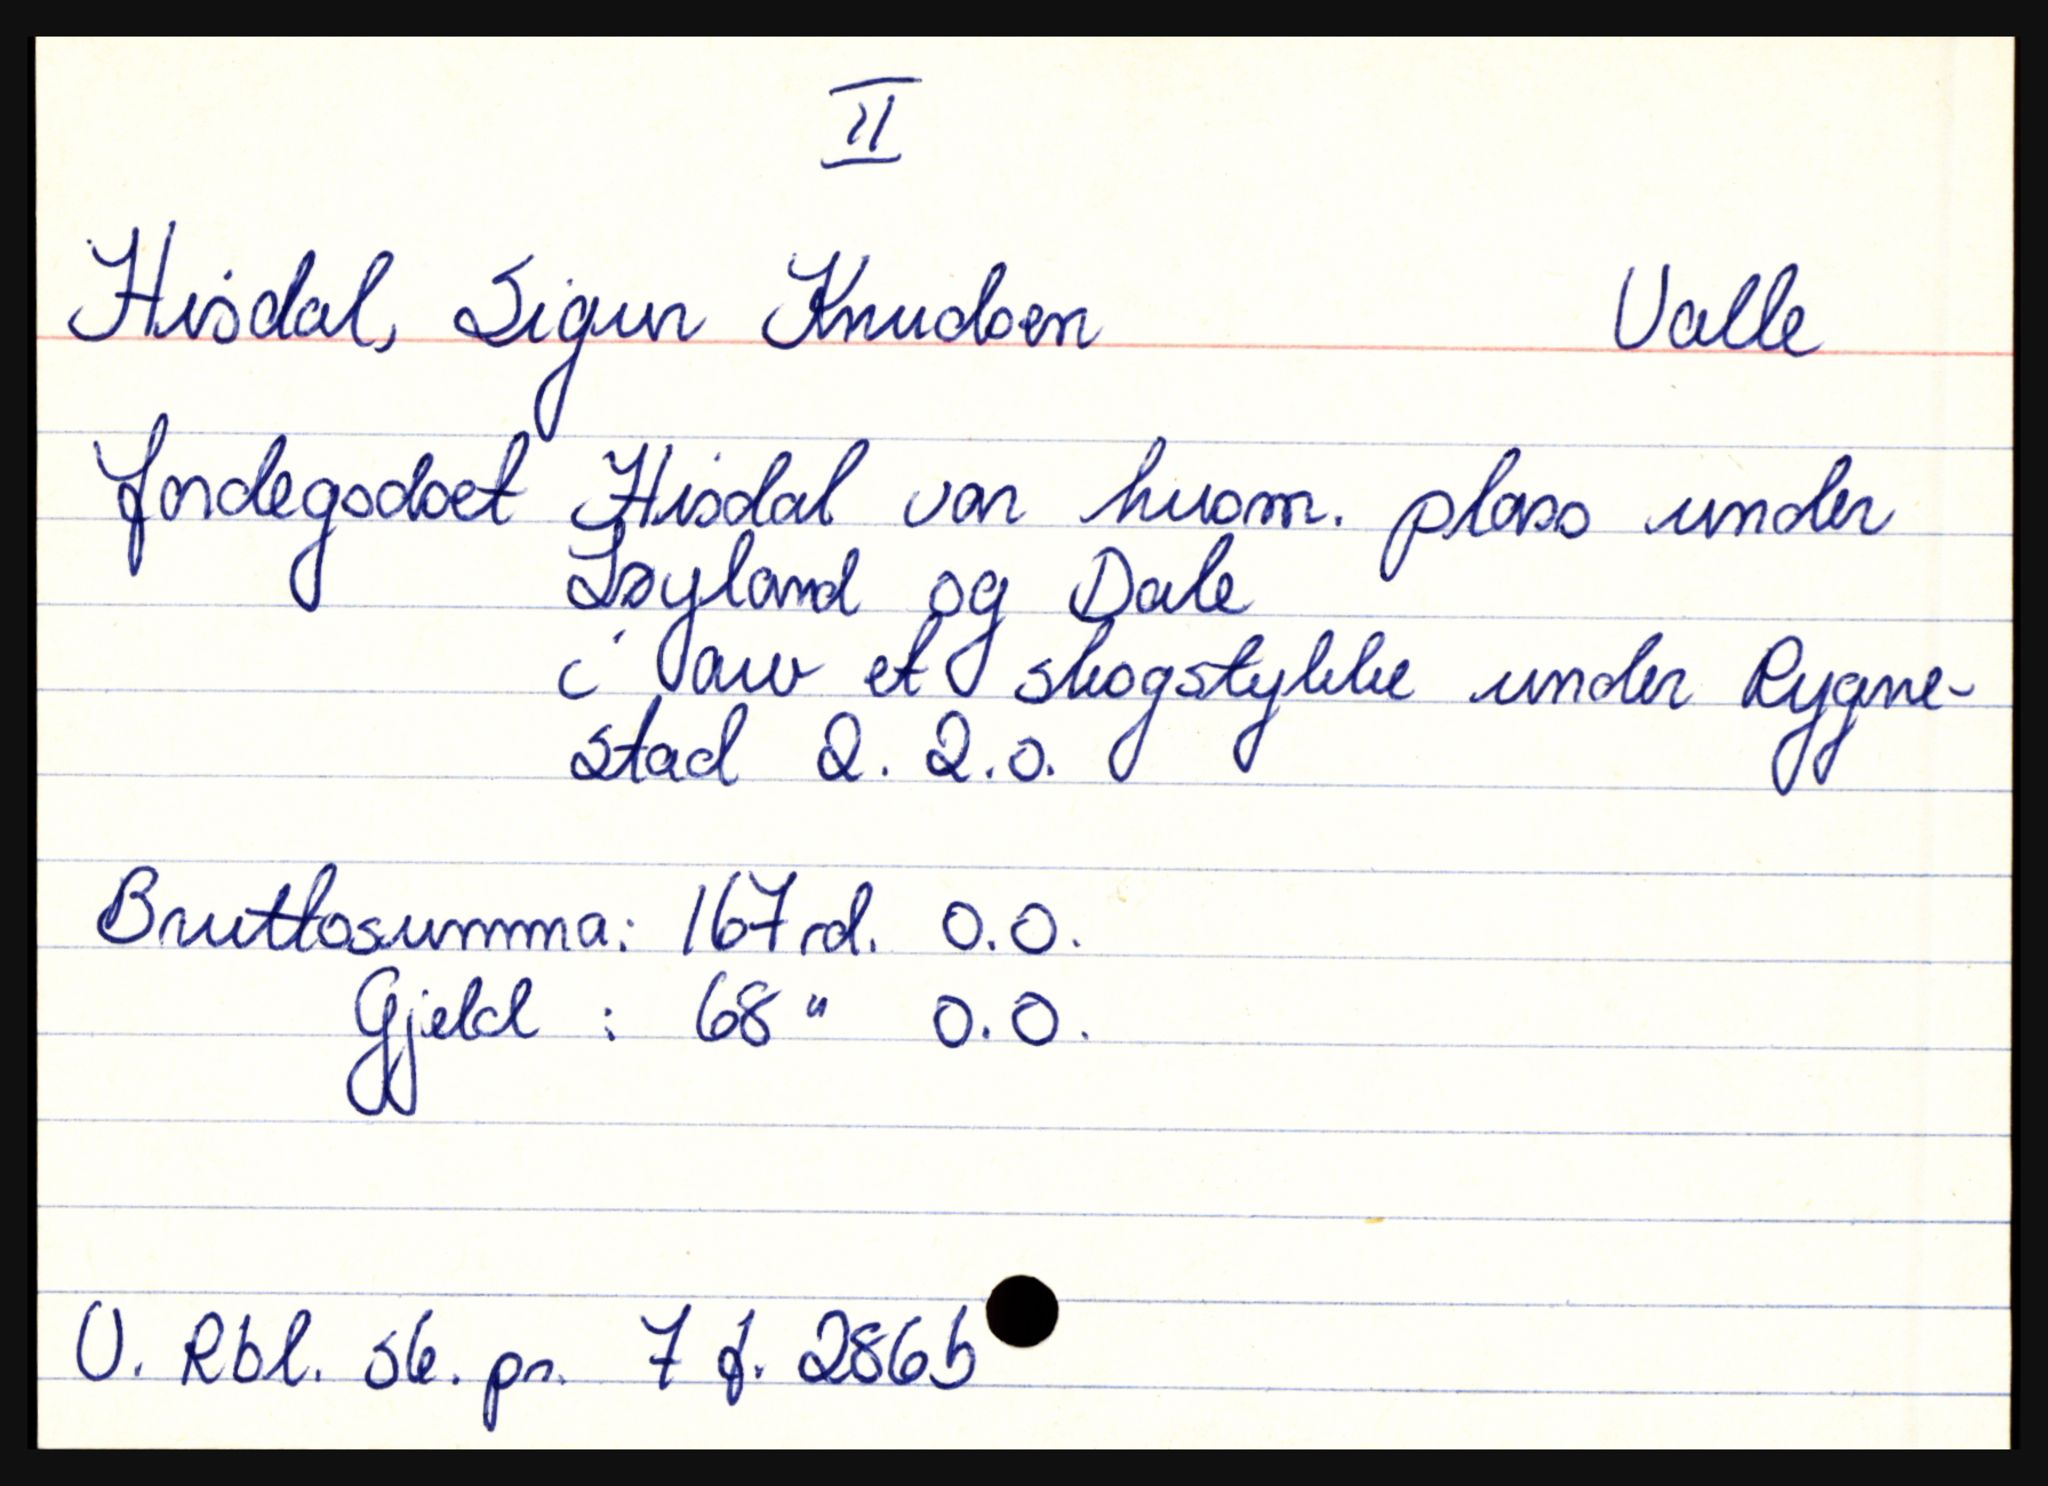 II
Hisdal, Sigur Knudsen Valle
Jordegodset Hisdal var husm. plass under
Løyland og Dale
i arv et skogstykke under Rygne-
stad 2. 2.0.
Bruttosumma: 167 rd. 0.0.
Gjeld : 68 " 0.0.
O. Rbl. sk. pr. 7 f. 286b